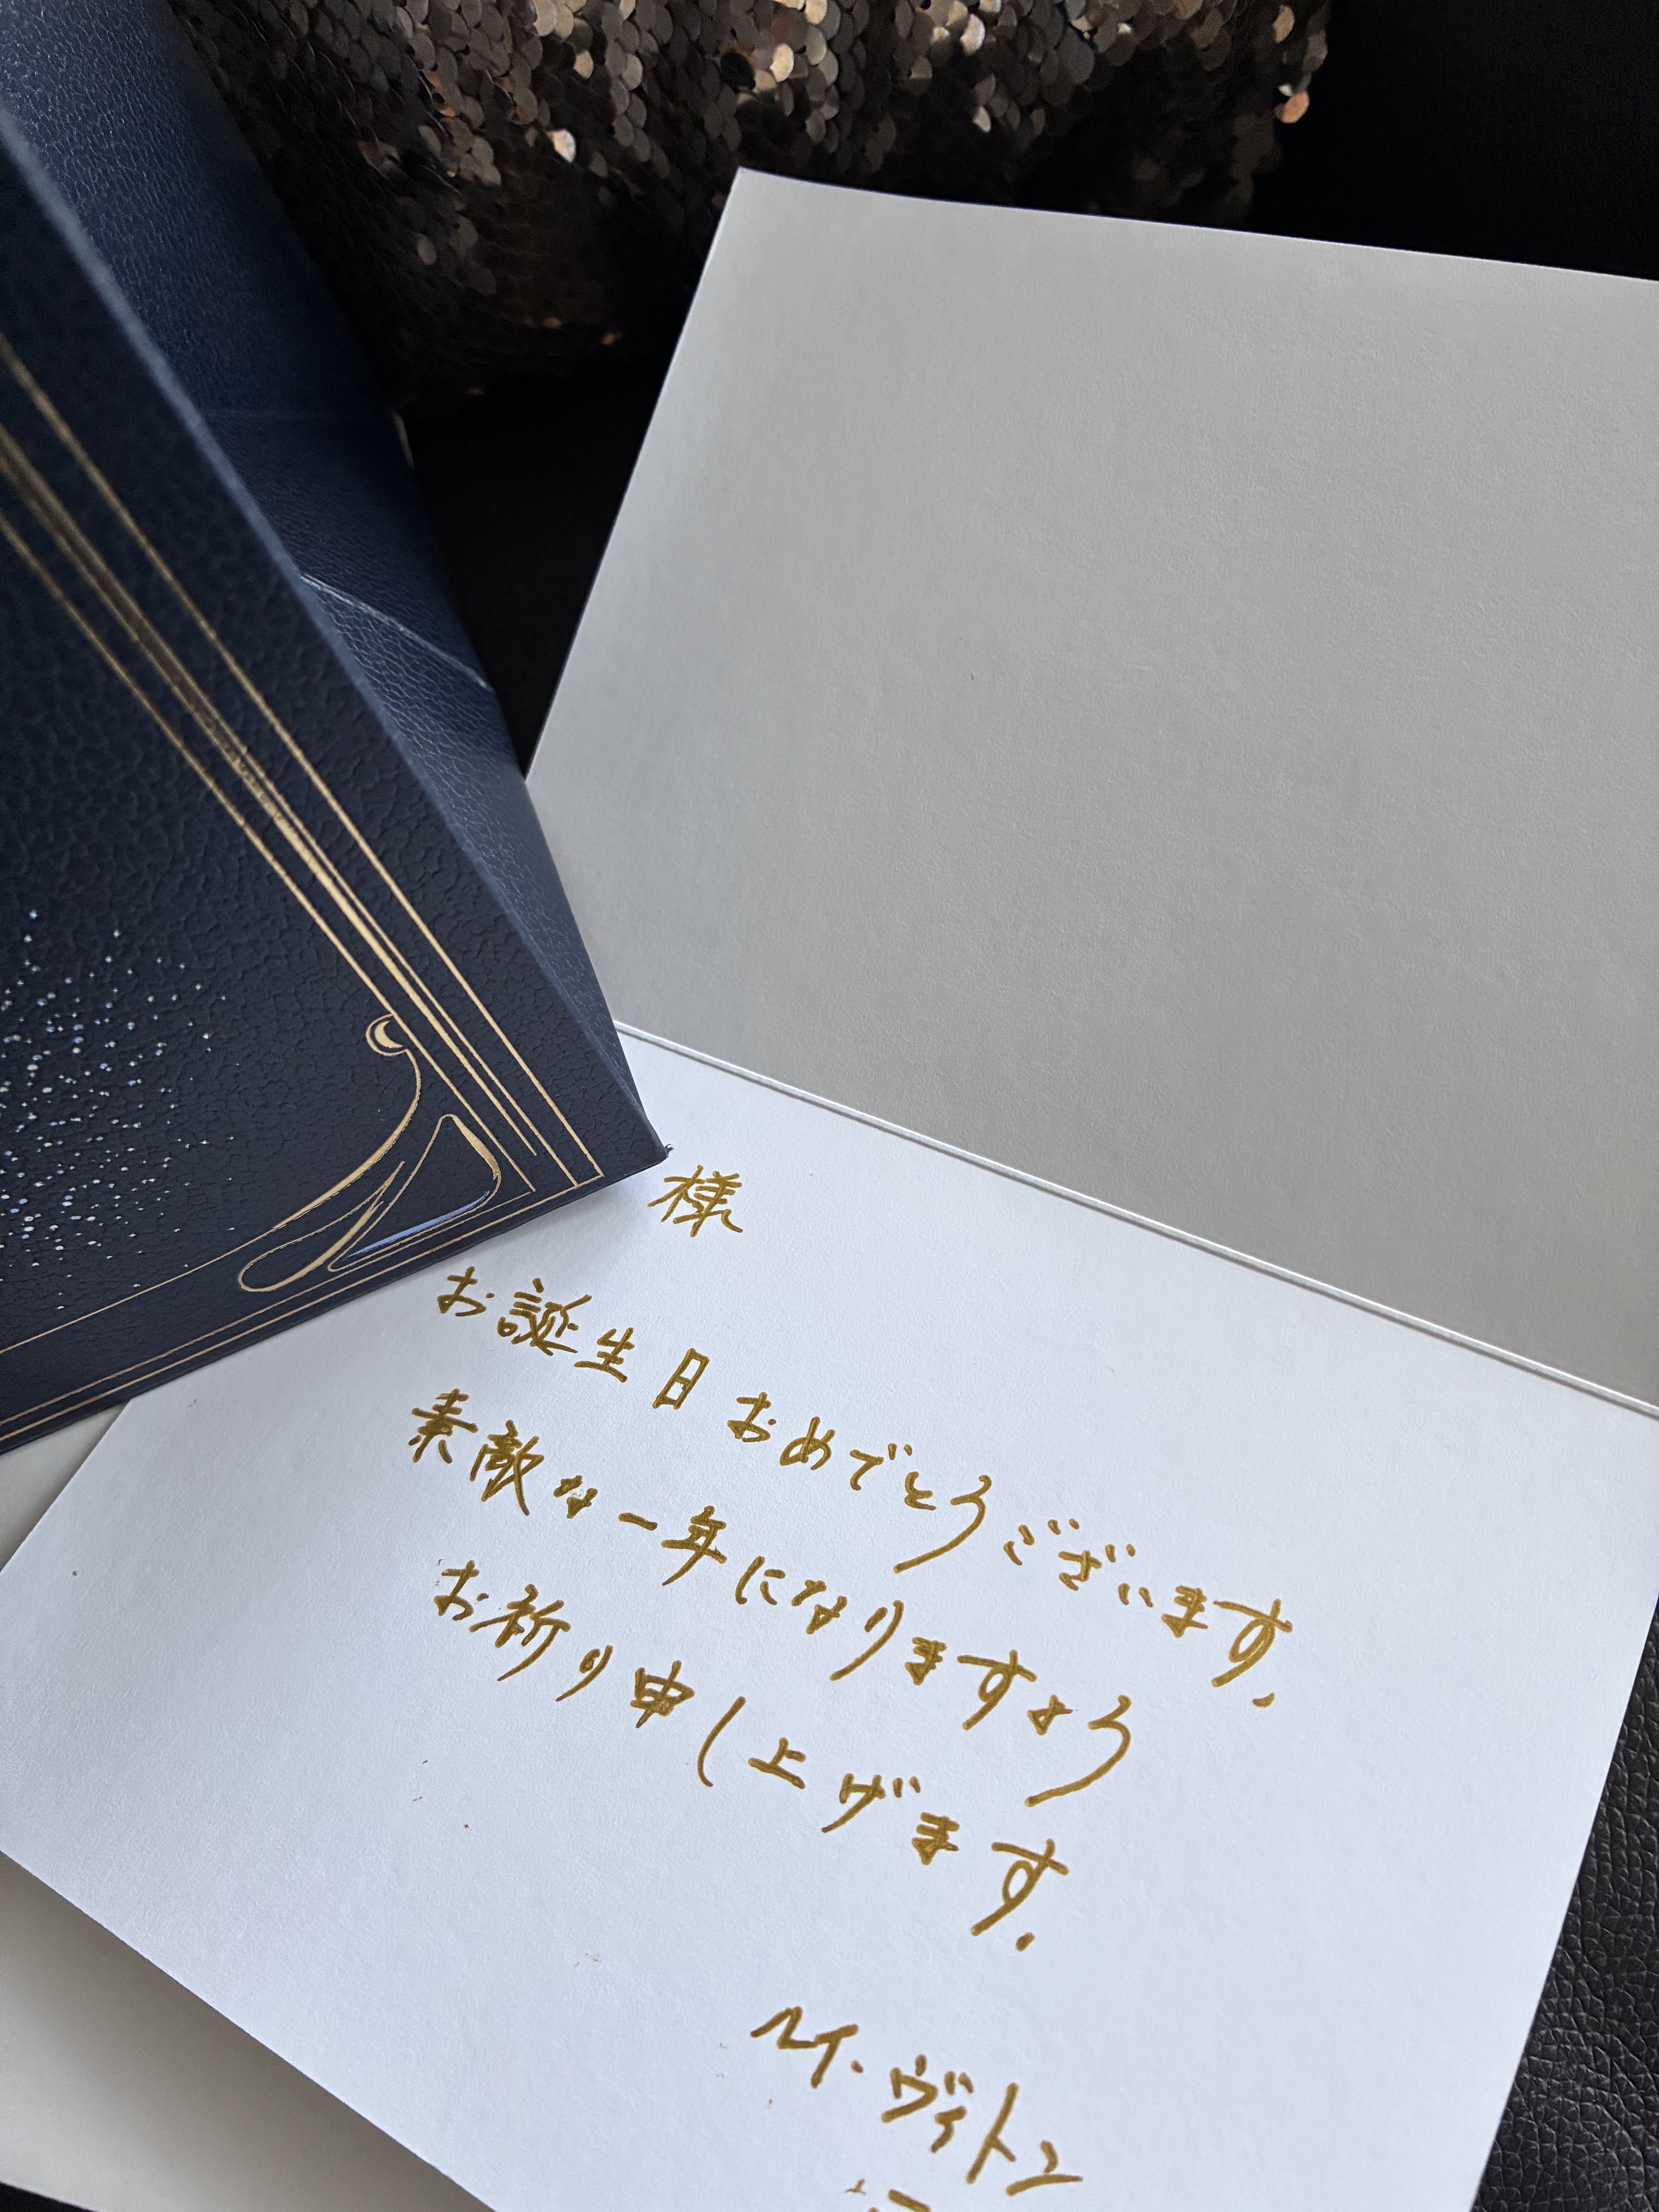 様
お誕生日おめでとうございます.
素敵な一年になりますよう
お祈り申し上げます.
ルイ・ヴィトン